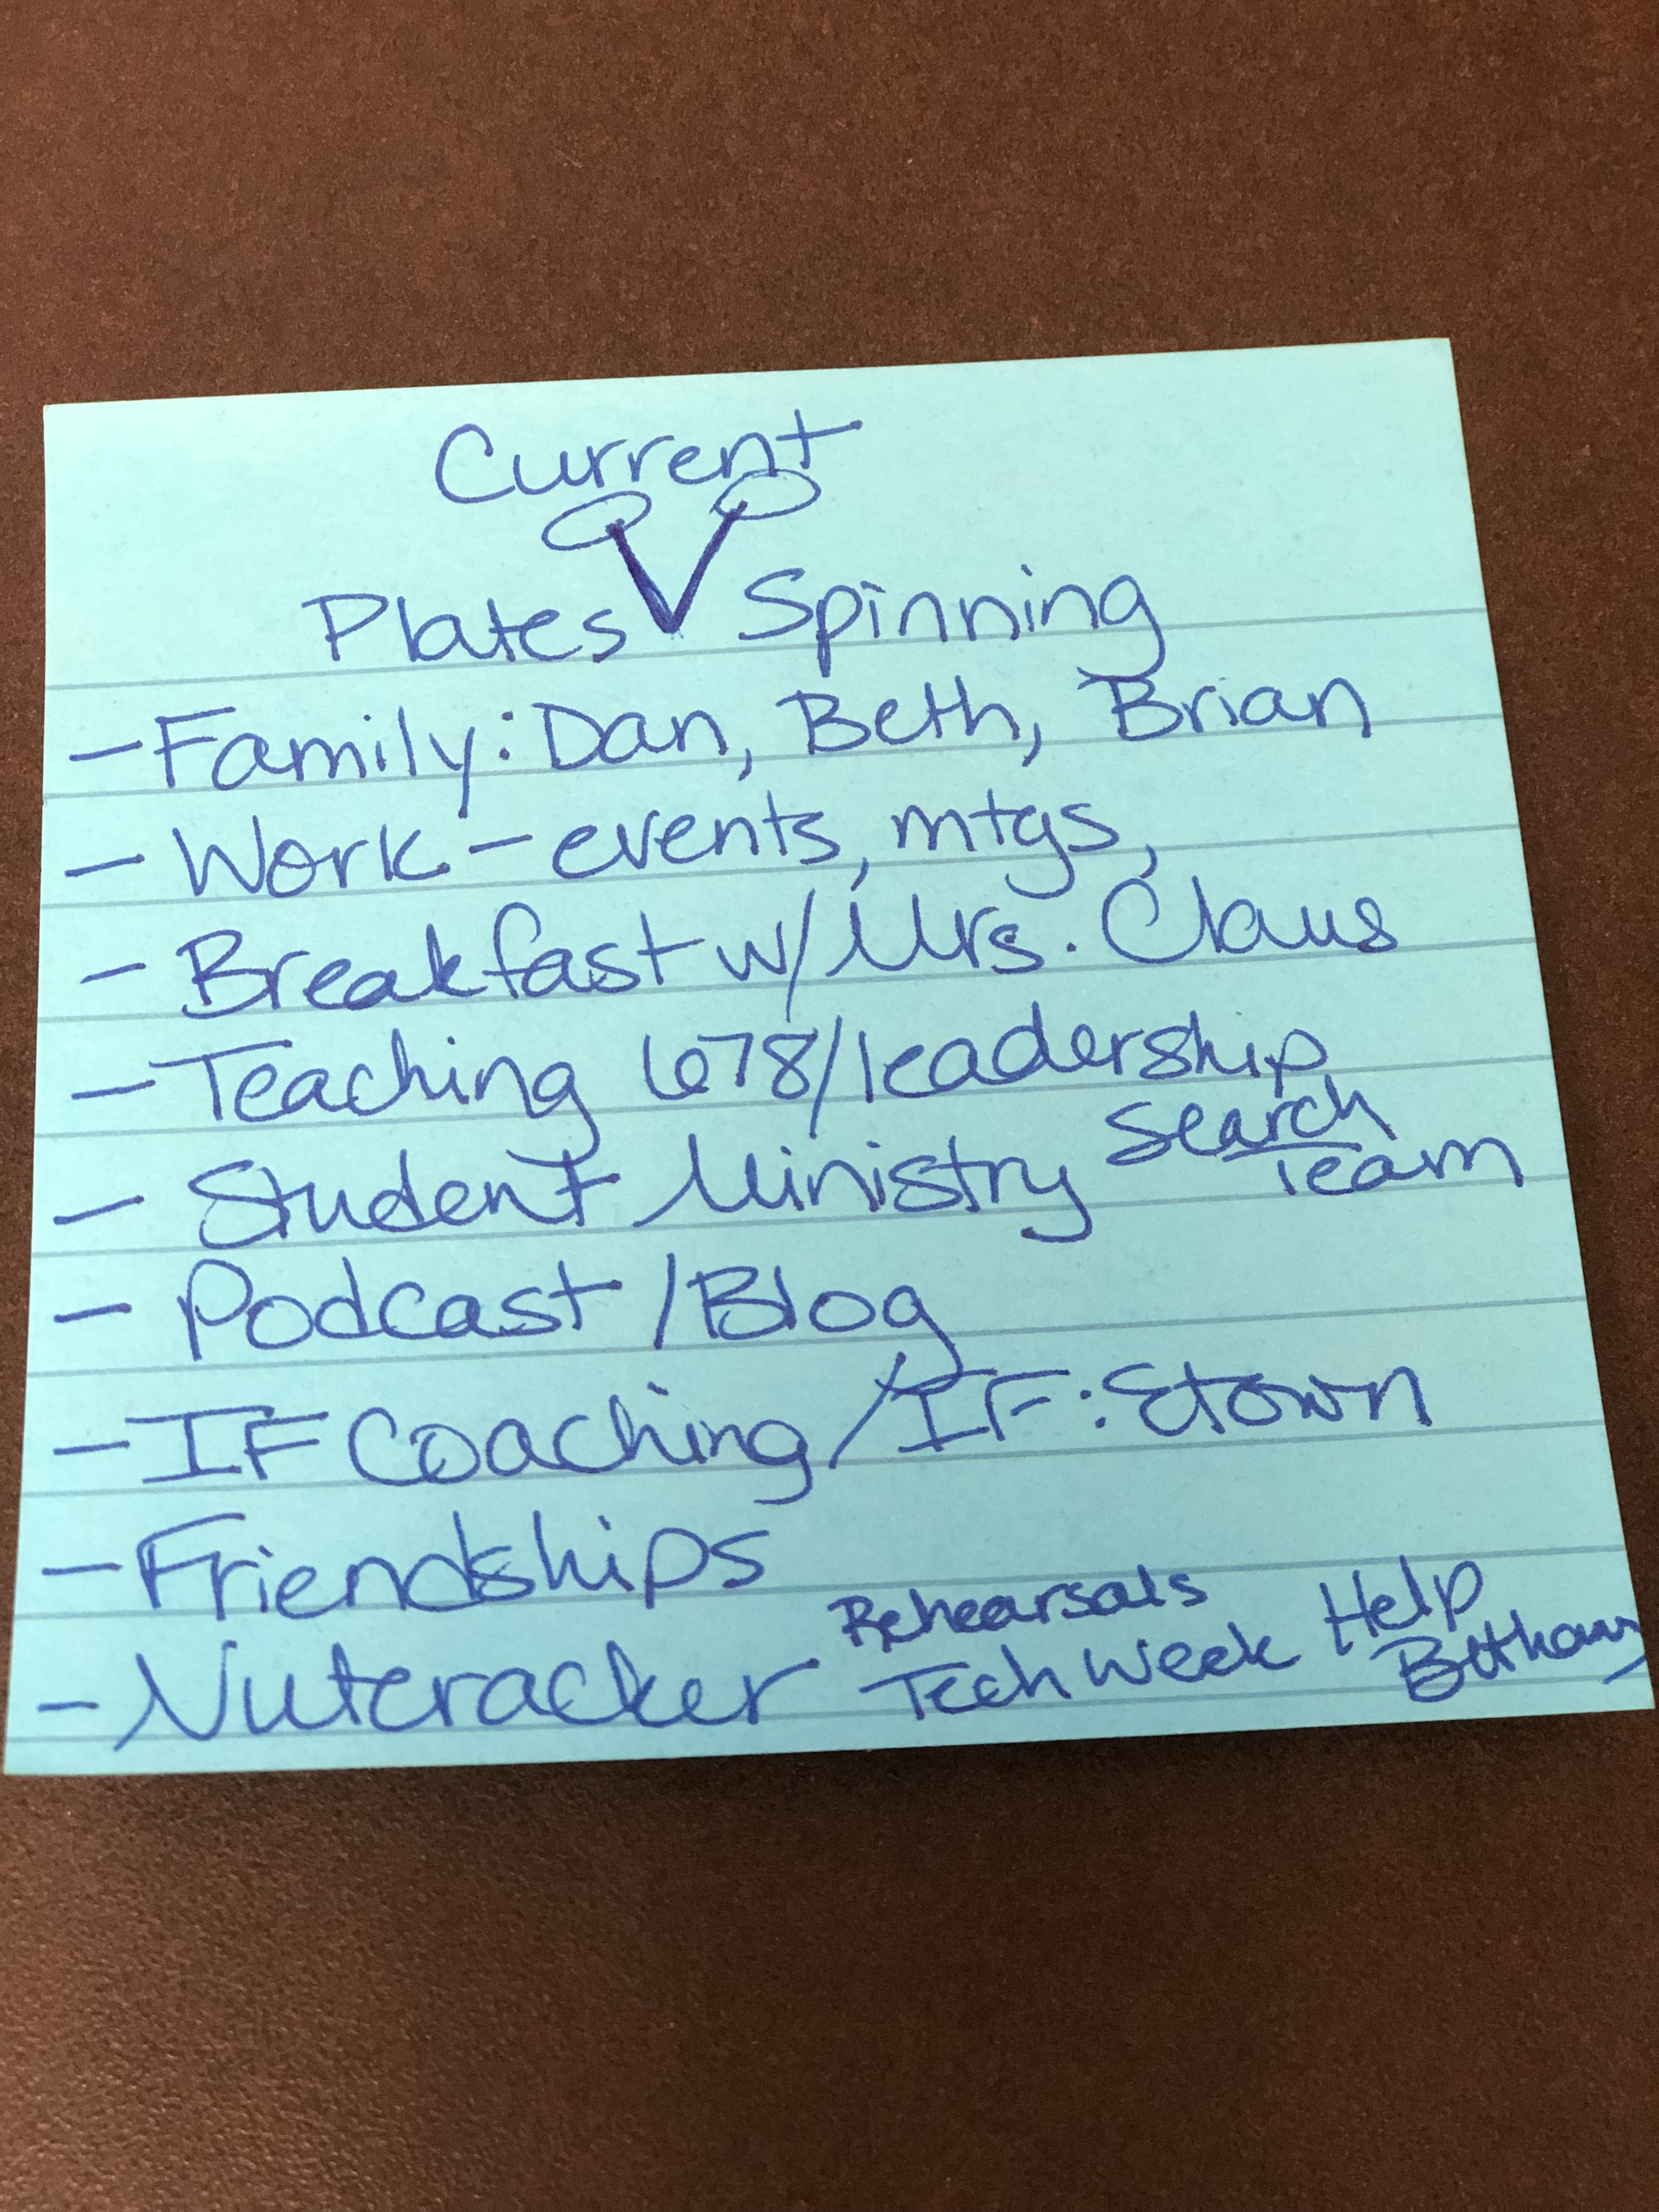 Current
Plates Spinning
- Family: Dan, Beth, Brian
- Work - events, mtgs,
- Breakfast w/ Mrs. Claus
- Teaching 678/leadership
- Student Ministry Search Team
- Podcast / Blog
- IF Coaching / IF: Etown
- Friendships
- Nutcracker Rehearsals Tech Week Help Bethany